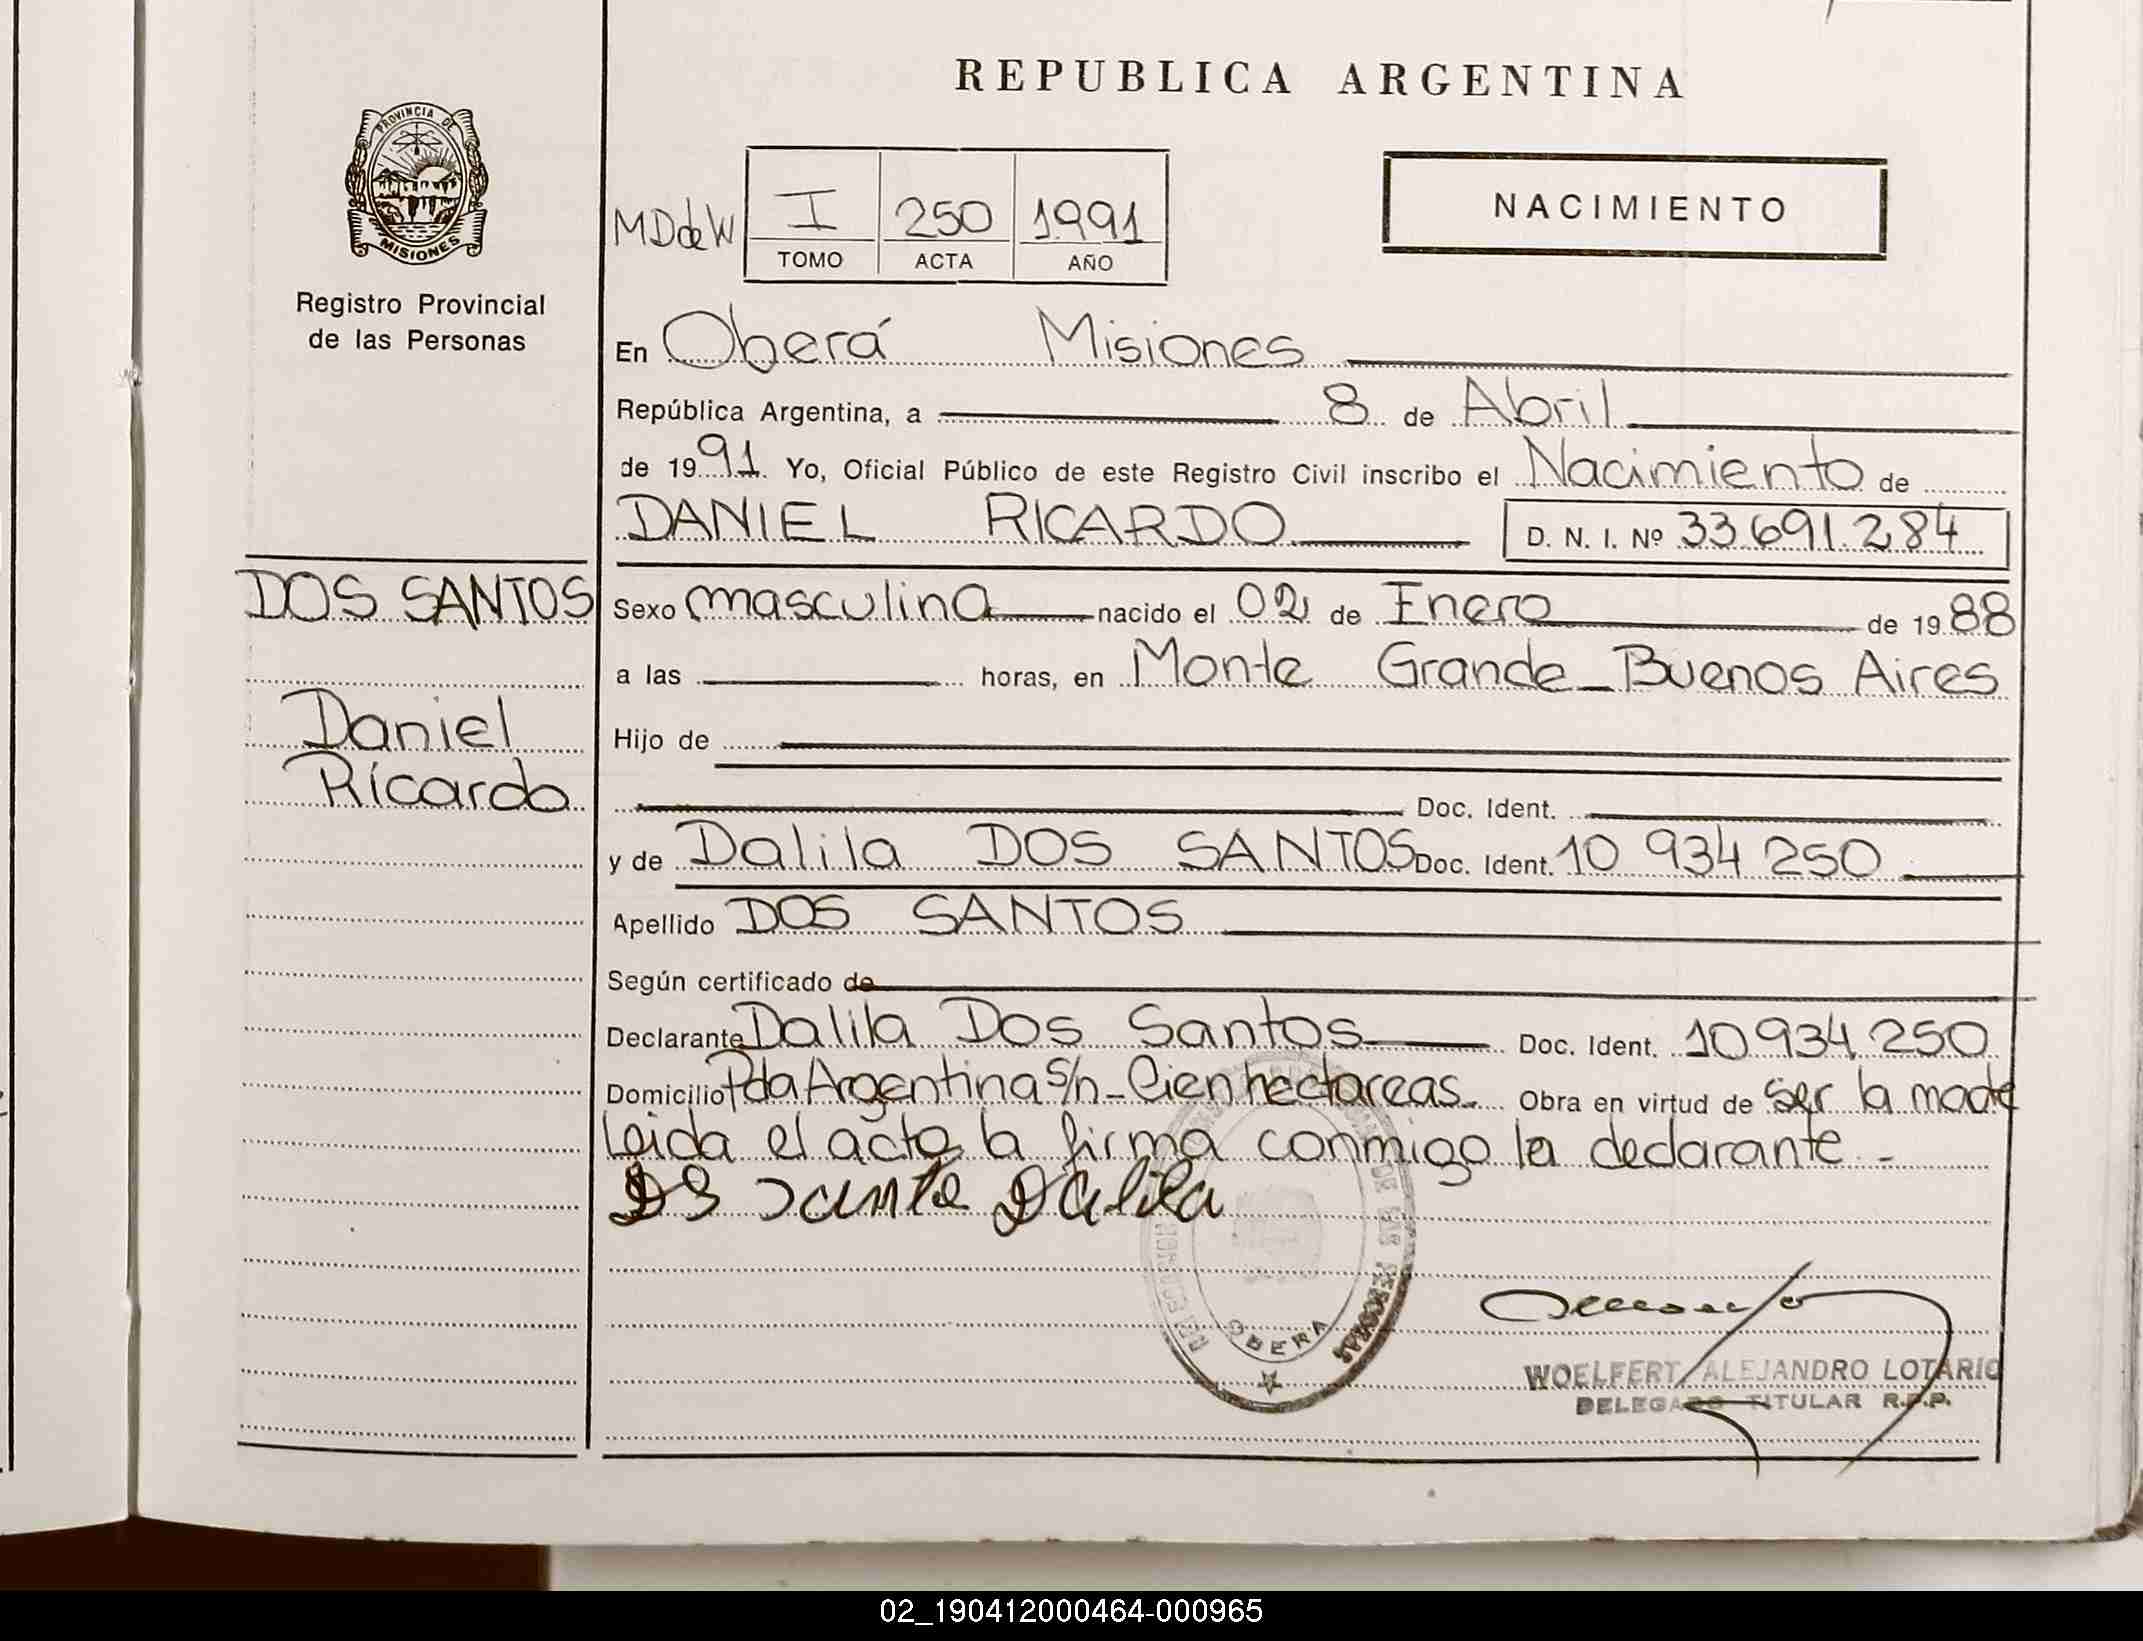 REPUBLICA ARGENTINA
PROVINCIA DE
MISIONES
Registro Provincial
de las Personas
MDdeW
I 250 1991
TOMO ACTA AÑO
NACIMIENTO
En Oberá Misiones
República Argentina, a 8 de Abril
de 1991 Yo, Oficial Público de este Registro Civil inscribo el Nacimiento de
DANIEL RICARDO D. N. I. Nº 33.691.284
DOS SANTOS
Daniel
Ricardo
Sexo masculino nacido el 02 de Enero de 1988
a las horas, en Monte Grande - Buenos Aires
Hijo de
Doc. Ident.
y de Dalila DOS SANTOS Doc. Ident. 10 934 250
Apellido DOS SANTOS
Según certificado de
Declarante Dalila Dos Santos Doc. Ident. 10934250
Domicilio Pda Argentina s/n - Cien hectareas - Obra en virtud de ser la madre
Leida el acta la firma conmigo la declarante -
Dalila
DE LAS PERSONAS
OBERA
WOELFERT ALEJANDRO LOTARIO
DELEGADO TITULAR R.P.P.
02_190412000464-000965